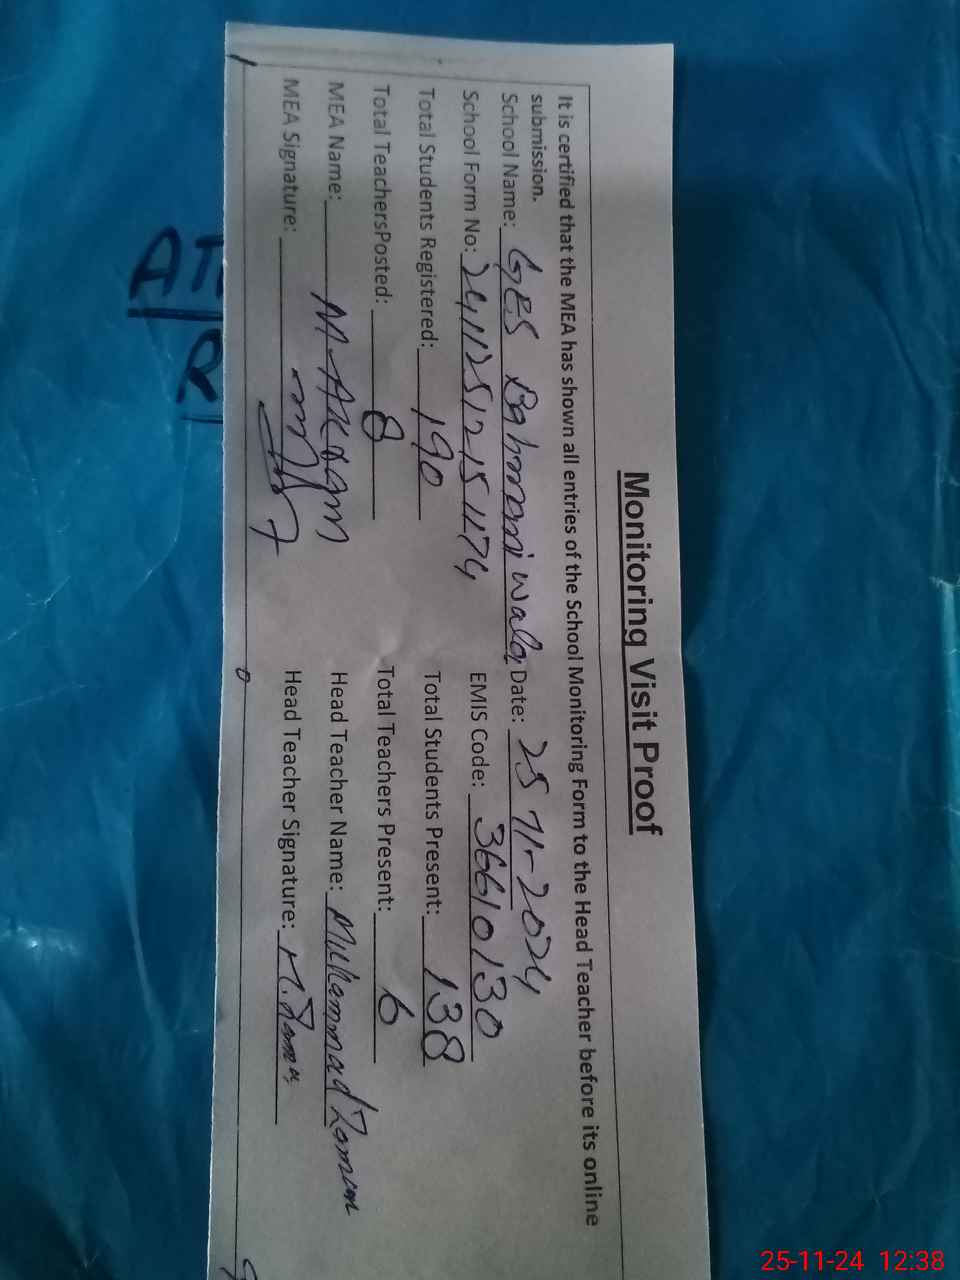 Monitoring Visit Proof
It is certified that the MEA has shown all entries of the School Monitoring Form to the Head Teacher before its online
submission.
School Name: GES Bahmani wala Date: 25-11-2024
School Form No: EMIS Code: 36610130
Total Students Registered: 190 Total Students Present: 138
Total TeachersPosted: 8 Total Teachers Present: 6
MEA Name: M Akram Head Teacher Name: Muhammad Zaman
MEA Signature: Head Teacher Signature: M. Zaman
25-11-24 12:38